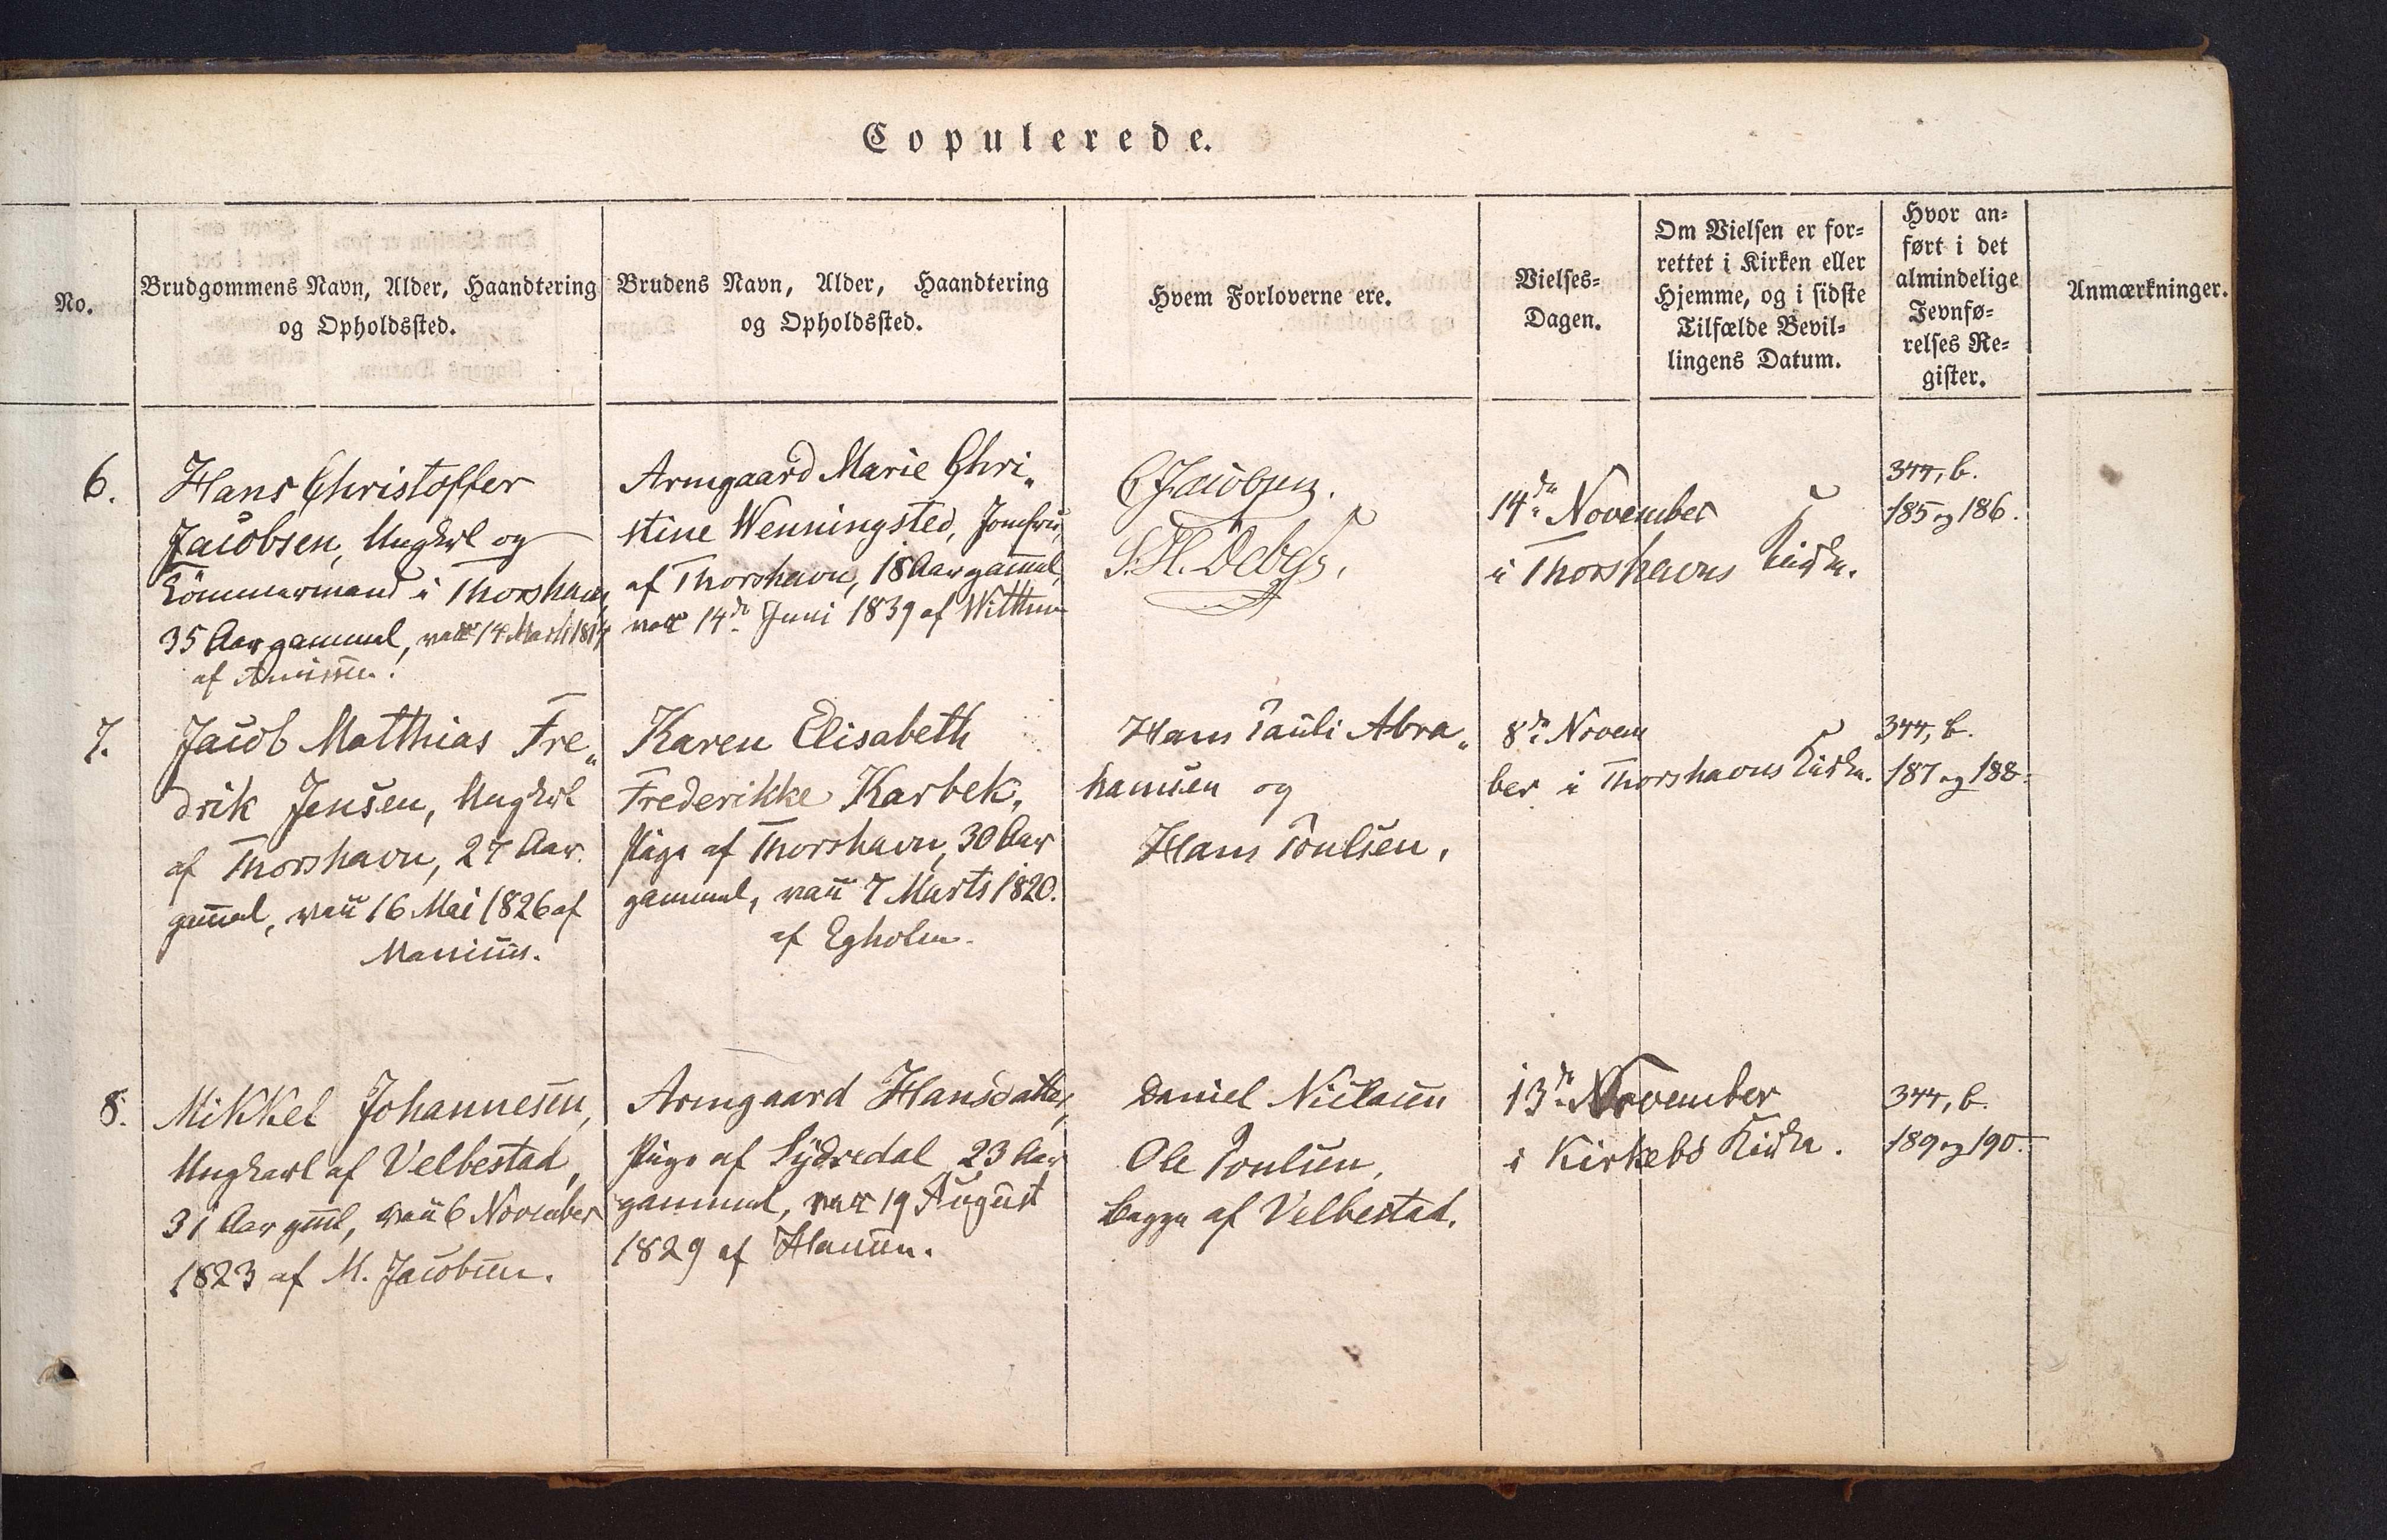 Copulerede.
No.
Brudgommens Navn, Alder, Haandtering
og Opholdssted.
Brudens Navn, Alder, Haandtering
og Opholdssted.
Hvem Forloverne ere.
Vielses-
Dagen.
Om Vielsen er for-
rettet i Kirken eller
Hjemme, og i sidste
Tilfælde Bevil-
lingens Datum.
Hvor an-
ført i det
almindelige
Jevnfø-
relses Re-
gister.
Anmærkninger.
6.
Hans Christoffer
Jacobsen, Ungkarl og
Tömmermand i Thorshavn,
35 Aar gammel, vacc 14 Marts 1817
af
Armgaard Marie Chri„
stine Wenningsted, Jomfru,
af Thorshavn, 18 Aar gammel,
vacc 14de Juni 1839 af
C Jacobsen.
S. H. Debess.
14de November
i Thorshavns Kirke.
344, b.
185 og 186.
7.
Jacob Matthias Fre„
drik Jensen, Ungkarl
af Thorshavn, 27 Aar
gammel, vacc 16 Mai 1826 af
Manicus.
Karen Elisabeth
Frederikke Karbek,
Pige af Thorshavn, 30 Aar
gammel, vacc 7 Marts 1820.
af Egholm.
Hans Pauli Abra„
hamsen og
Hans Poulsen.
8de Novem
ber i Thorshavns Kirke.
344, b.
187 og 188.
8.
Mikkel Johannesen,
Ungkarl af Velbestad,
31 Aar gml, vacc 6 November
1823 af M. Jacobsen.
Armgaard Hansdatter,
Pige af Sydredal 23 Aar
gammel, vacc 19 August
1829 af Hansen.
Daniel Niclasen
Ole Poulsen,
begge af Velbestad.
13de November
i Kirkebö Kirke.
344, b.
189 og 190.